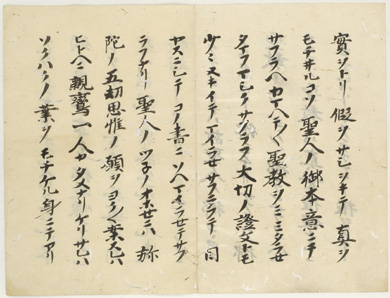 實ヲトリ假ヲサシヲキテ真ヲ
モチヰルコソ聖人ノ御本意ニテ
サフラヘカマヘテ〱聖教ヲミミタラセ
タマフマシクサフラフ大切ノ證文トモ
少々ヌキイテマイラセサフラフテ目
ヤスニシテコノ書ニソヘマイラセテサフ
ラフナリ聖人ノツネノオホセニハ弥
陀ノ五劫思惟ノ願ヲヨク〱案スレハ
ヒトヘニ親鸞一人カタメナリケリサレハ
ソクハクノ業ヲモチケル身ニテアリ